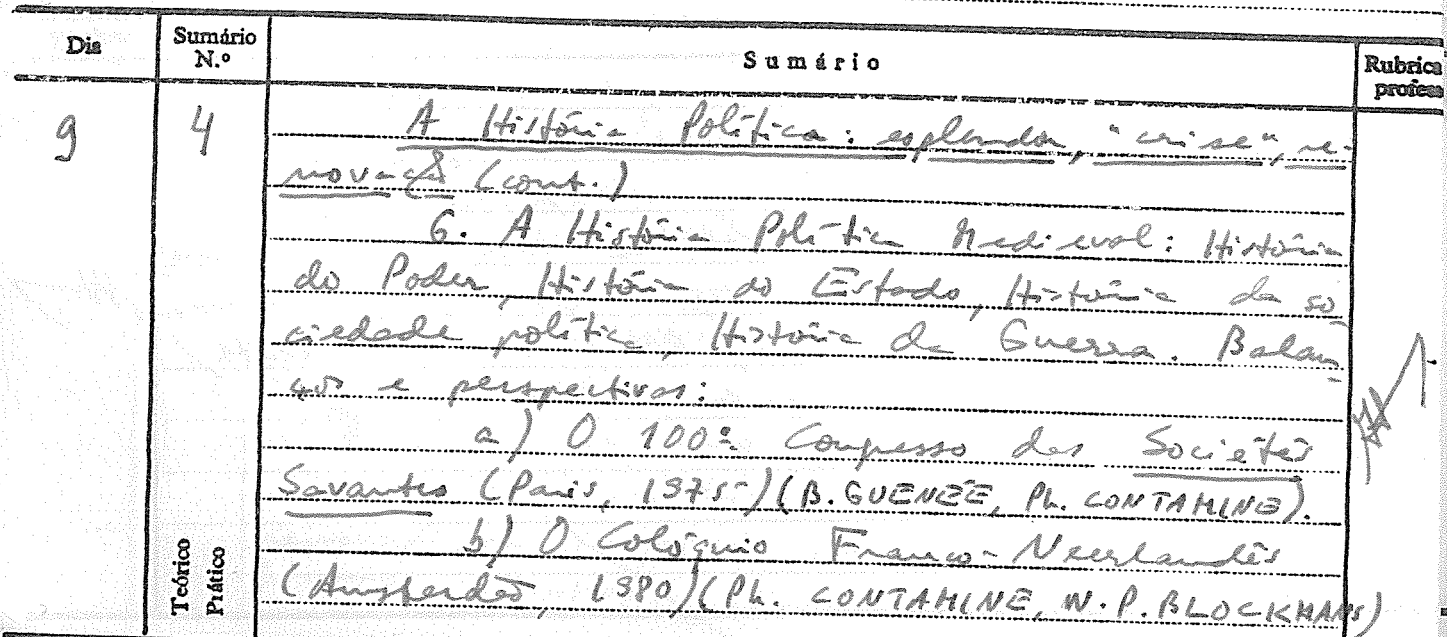 Dia Sumário N.º Sumário Rubrica profess
9 4 A História Política: esplendor, "crise", re-
novação (cont.)
6. A História Política Medieval: História
do Poder, História do Estado, História da so
ciedade política, História da Guerra. Balan-
ços e perspectivas:
a) O 100º Congresso das Sociétés
Savantes (Paris, 1975) (B. GUENÉE, Ph. CONTAMINE).
b) O Colóquio Franco-Neerlandês
(Amsterdão, 1980) (Ph. CONTAMINE, W. P. BLOCKMANS)
Teórico
Prático